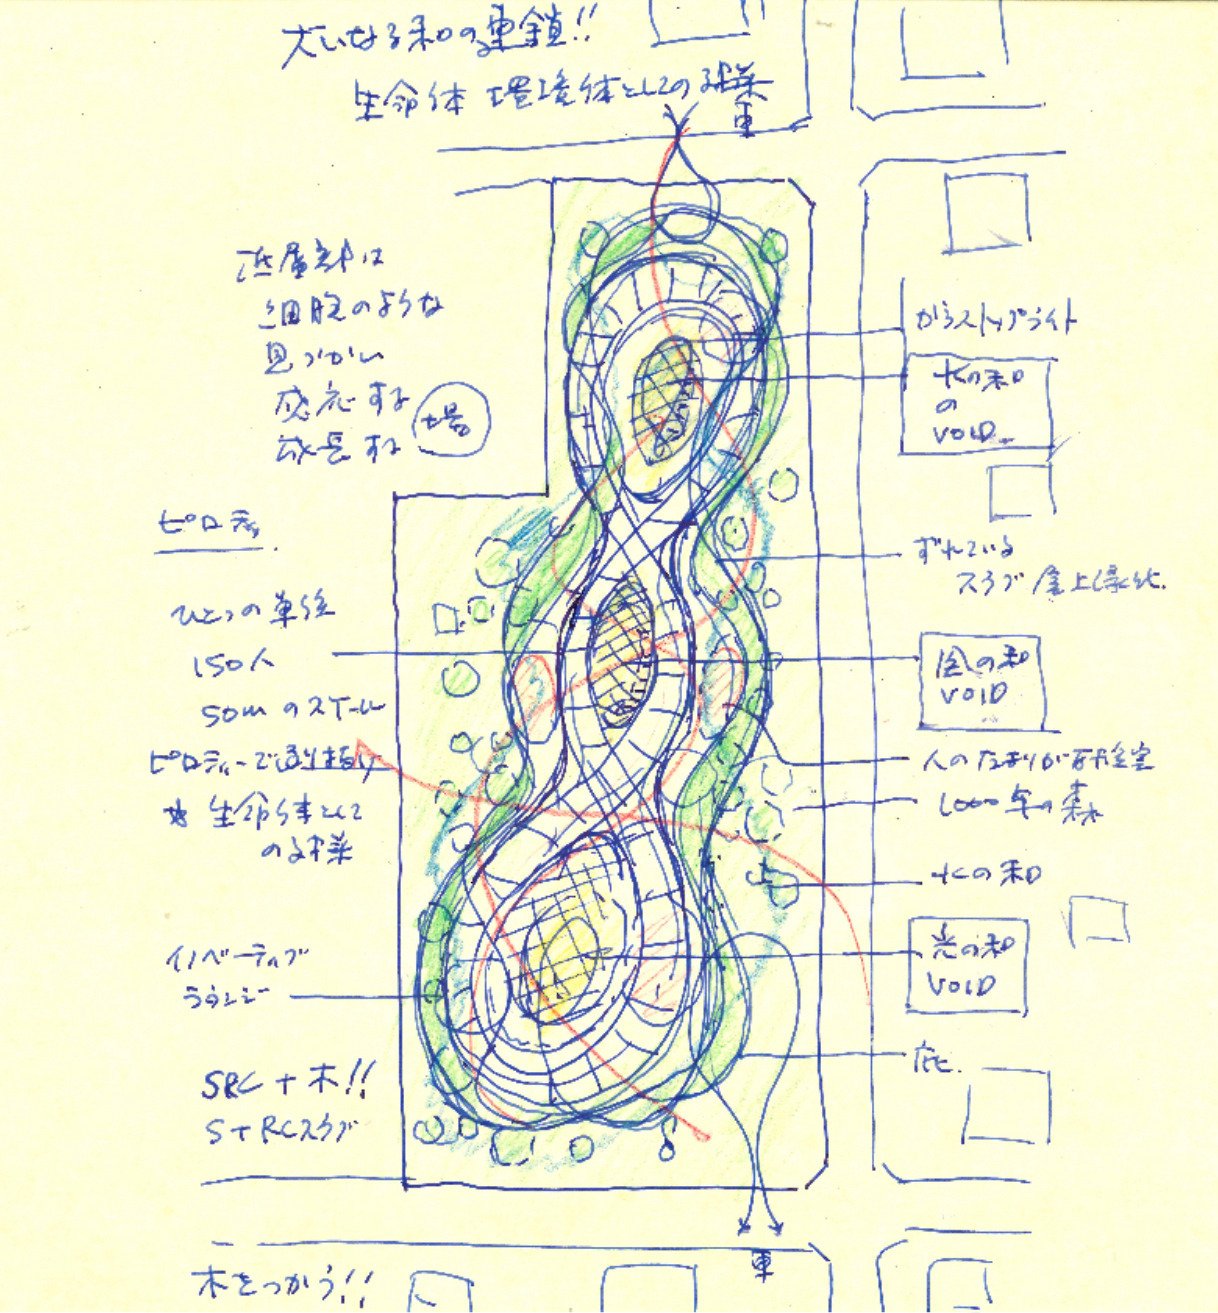 大いなる和の連鎖!!
生命体 環境体としての建築
車
低層部は
細胞のような
息づかい
感応する
成長する
場
ガラストップライト
水の和
の
VOID
ピロティ
ずれている
スラブ 屋上緑化
ひとつの単位
150人
50mのスケール
ピロティーで通り抜け
生命体として
の建築
風の和
VOID
人のたまりが
1000年の森
水の和
イノベーティブ
ラウンジ
光の和
VOID
庇
SRC + 木!!
S+RCスラブ
車
木をつかう!!